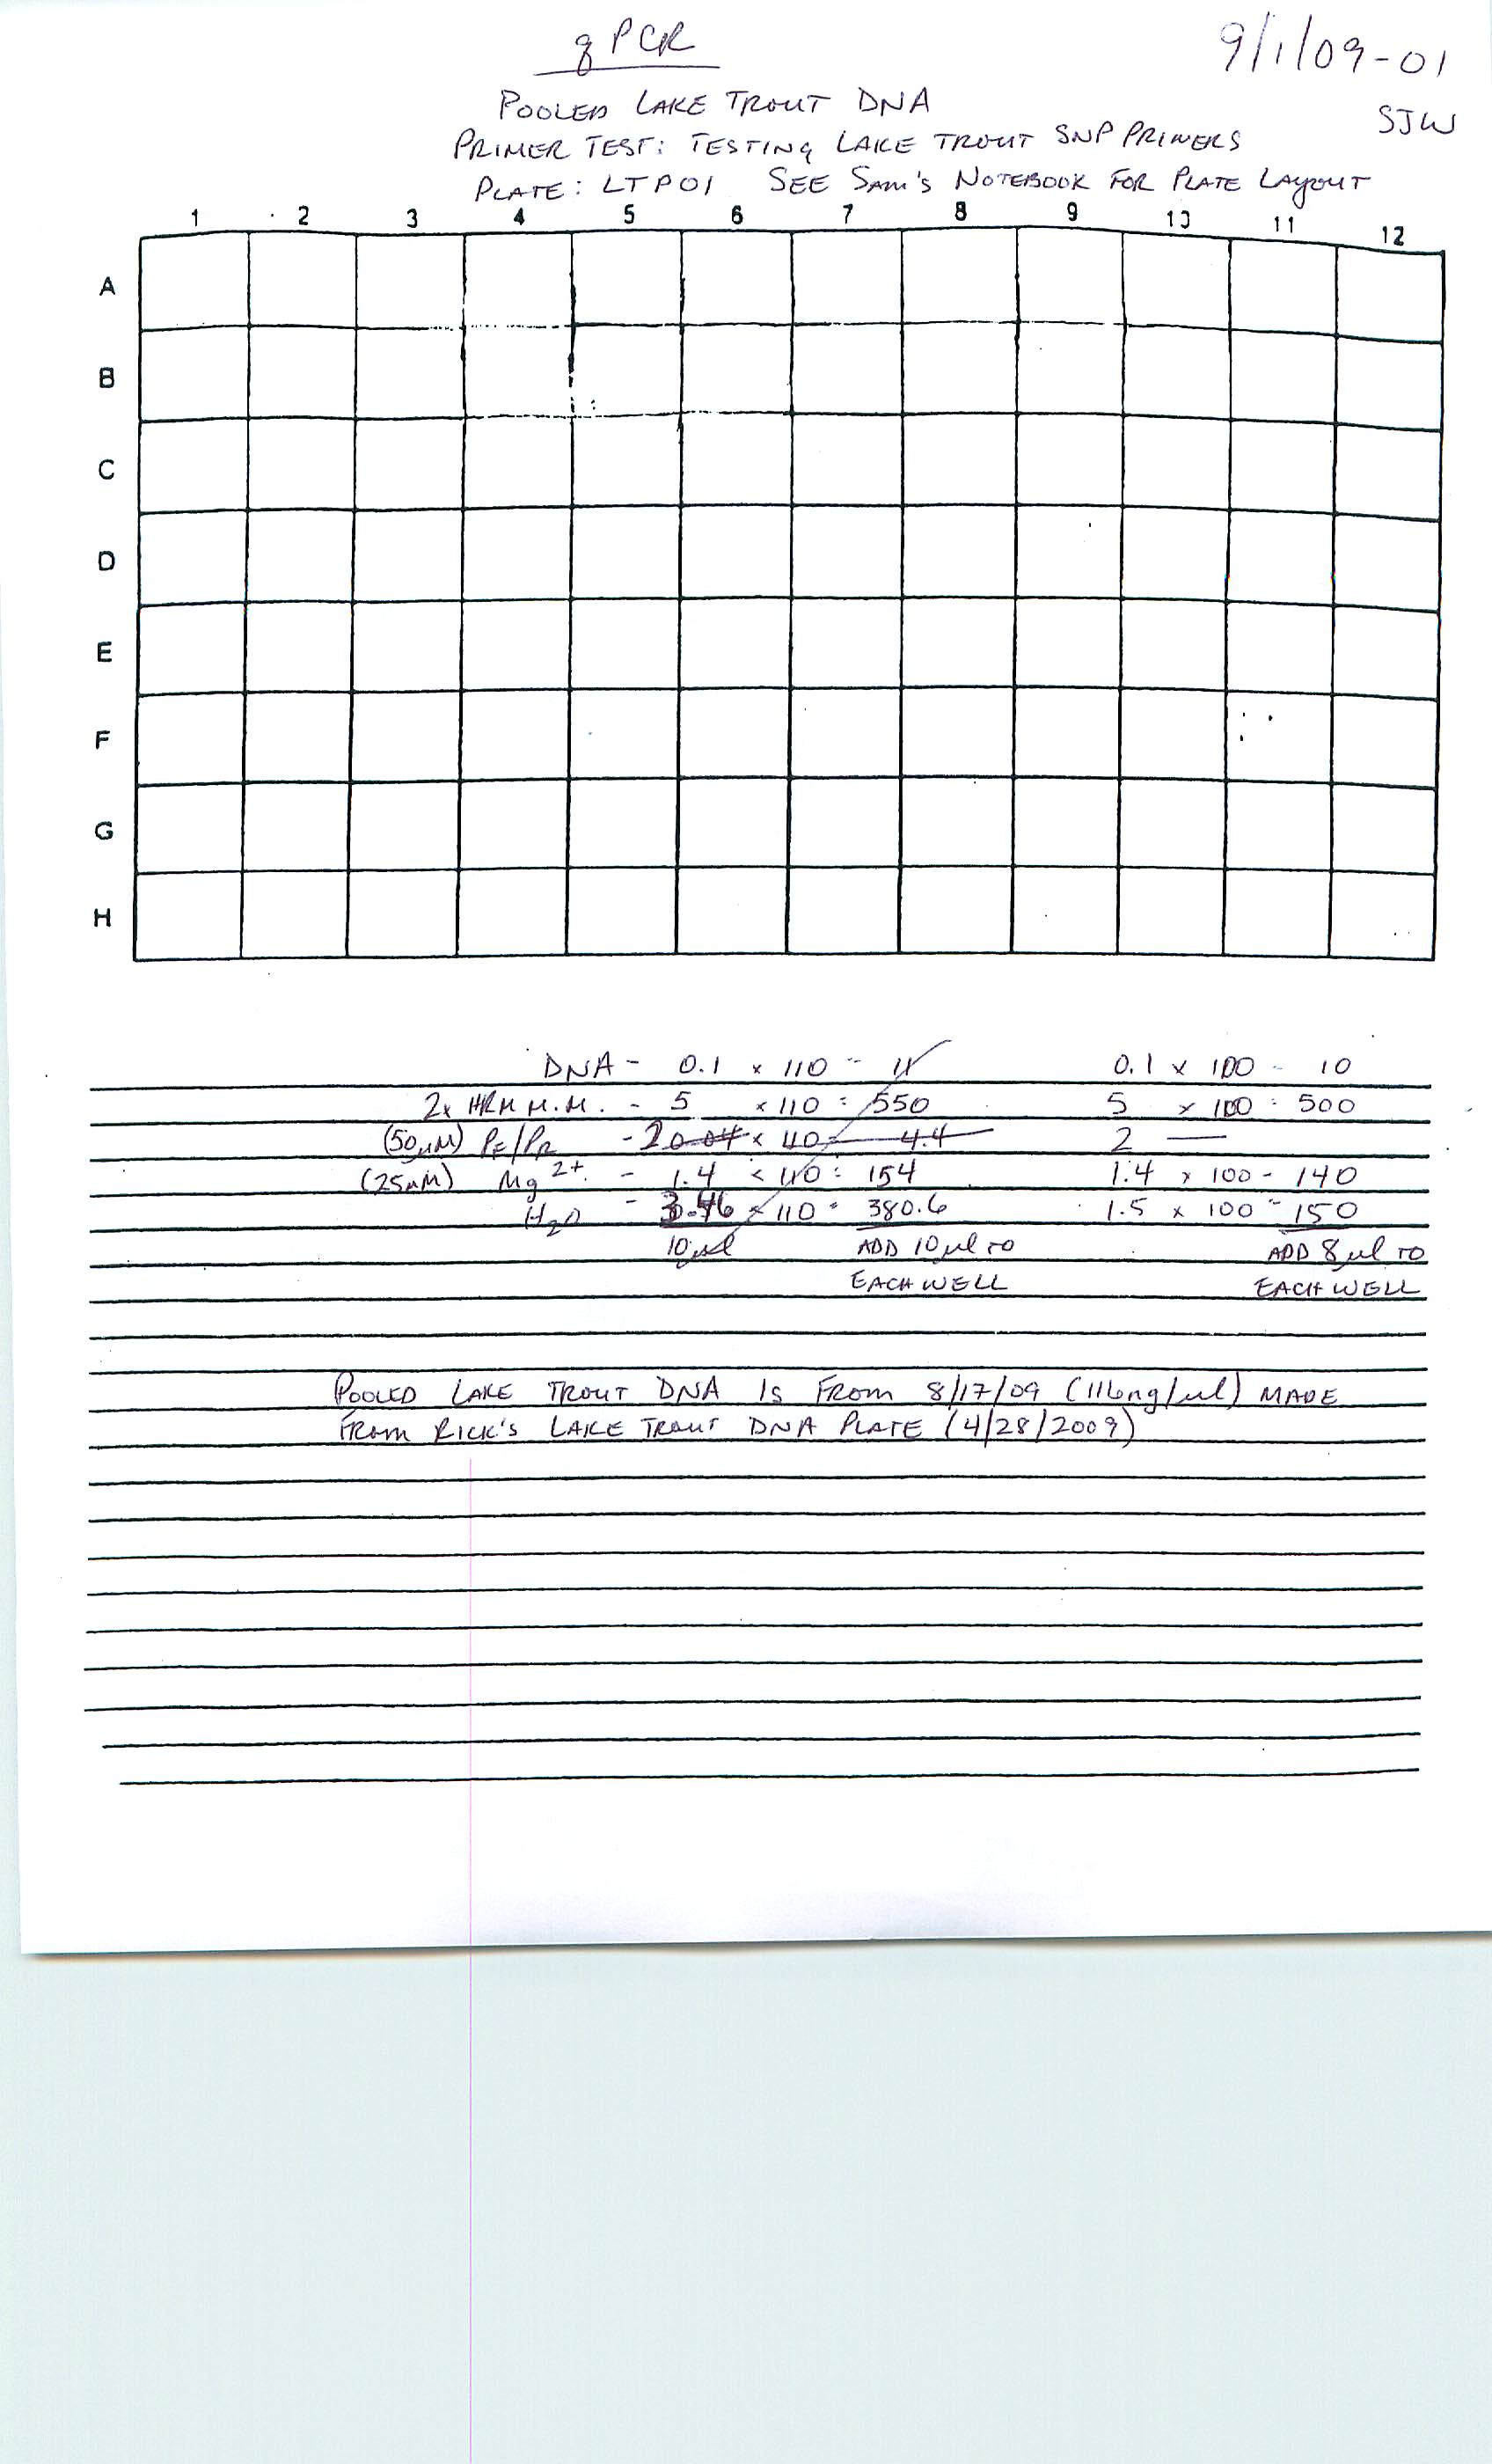 qPCR
9/1/09-01
POOLED LAKE TROUT DNA
SJW
PRIMER TEST: TESTING LAKE TROUT SNP PRIMERS
PLATE: LTP01 SEE SAM'S NOTEBOOK FOR PLATE LAYOUT
1 2 3 4 5 6 7 8 9 10 11 12
A
B
C
D
E
F
G
H
DNA - 0.1 x 110 = 11 0.1 x 100 = 10
2x HRM M.M. - 5 x 110 = 550 5 x 100 = 500
(50µM) PF/PR - 2 0.04 x 110 = 4.4 2 —
(25mM) Mg2+ - 1.4 x 110 = 154 1.4 x 100 = 140
H2O - 3.46 x 110 = 380.6 1.5 x 100 = 150
10µl ADD 10µl TO ADD 8µl TO
EACH WELL EACH WELL
POOLED LAKE TROUT DNA IS FROM 8/17/09 (116ng/µl) MADE
FROM RICK'S LAKE TROUT DNA PLATE (4/28/2009)